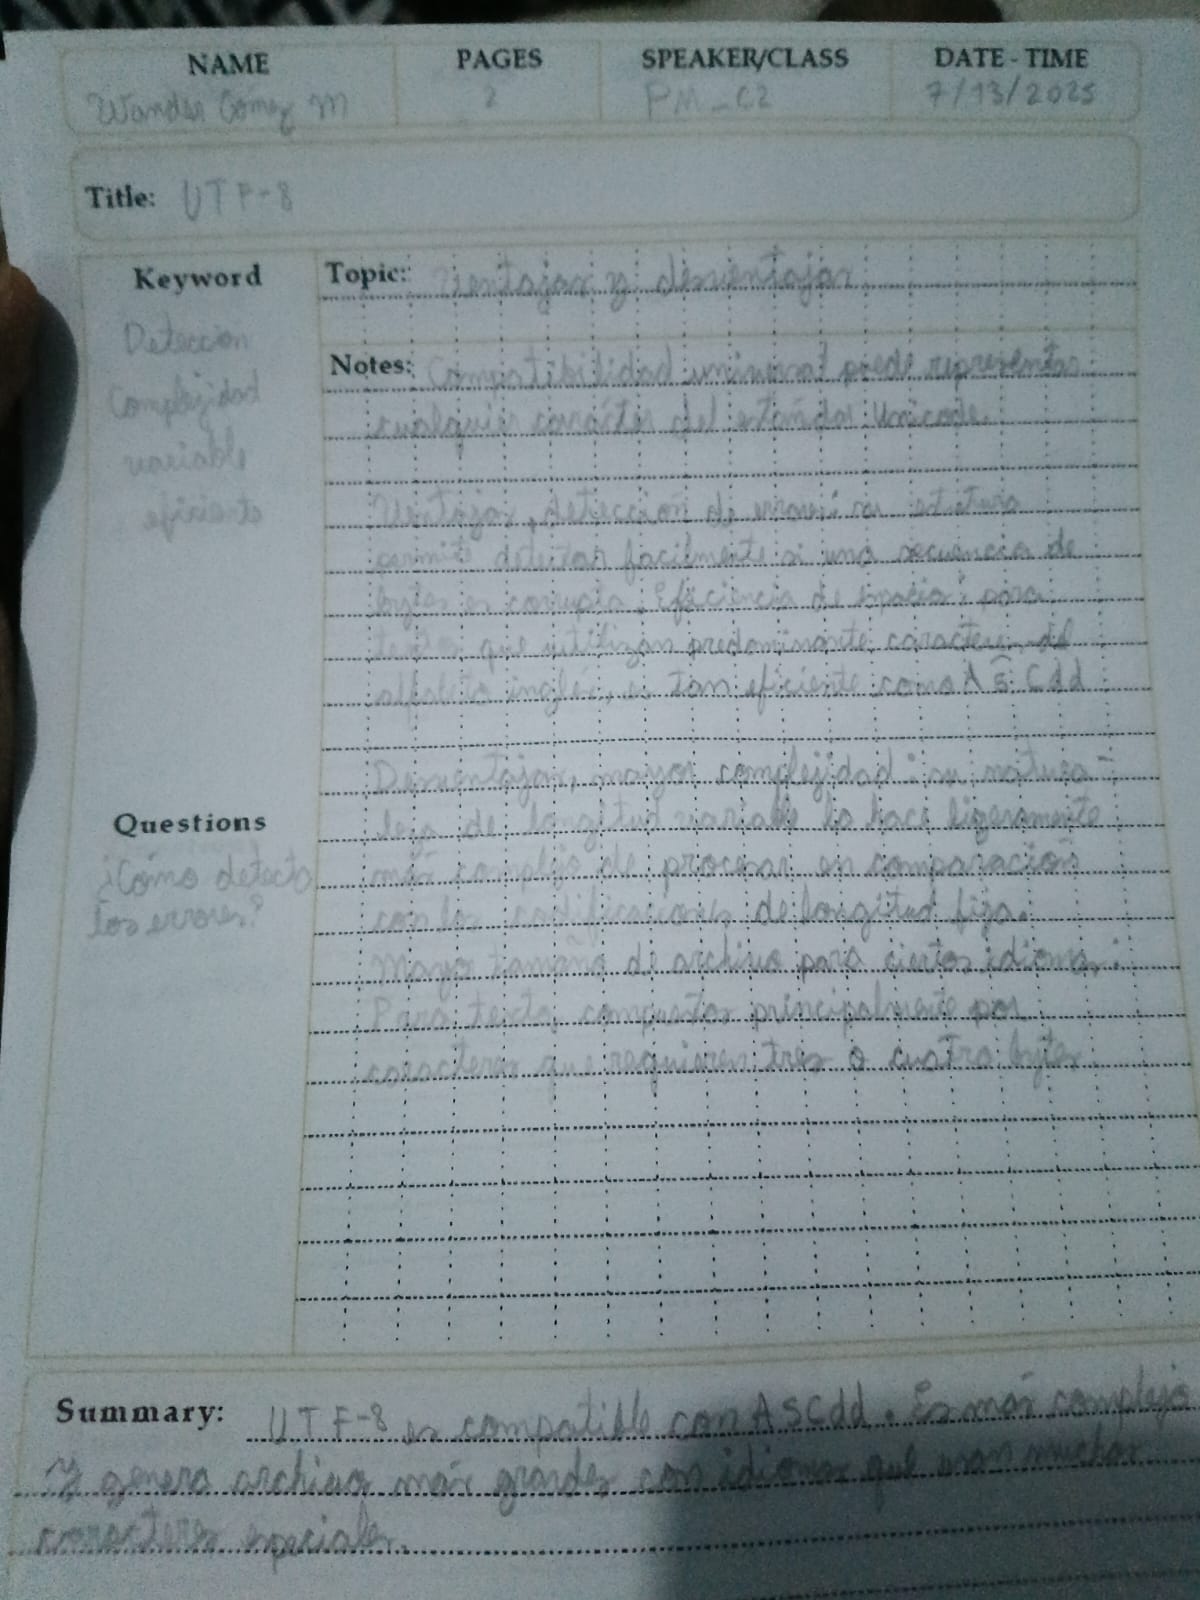 NAME PAGES SPEAKER/CLASS DATE - TIME
Wander Gómez M 2 PM_C2 7/13/2025
Title: UTF-8
Keyword
Detección
Complejidad
variable
eficiente
Topic: Ventajas y desventajas
Notes: Compatibilidad universal puede representar
cualquier carácter del estándar Unicode.
Ventajas, detección de errores: su
permite detectar facilmente si una secuencia de
bytes es corrupta. Eficiencia de espacio: para
que utilizan predominante caracteres del
alfabeto ingles, es tan eficiente como ASCdd
Desventajas, mayor complejidad: su natura-
leza de longitud variable lo hace ligeramente
más complejo de procesar en comparación
con las codificaciones de longitud fija.
Mayo tamaño de archivo para ciertos idiomas:
Para texto compuestos principalmente por
caracteres que requieren tres o cuatro bytes
Questions
¿Cómo detecta
los errores?
Summary: UTF-8 es compatible con ASCdd. Es más complejo
y genera más grandes con idiomas que usan muchos
caracteres especiales.